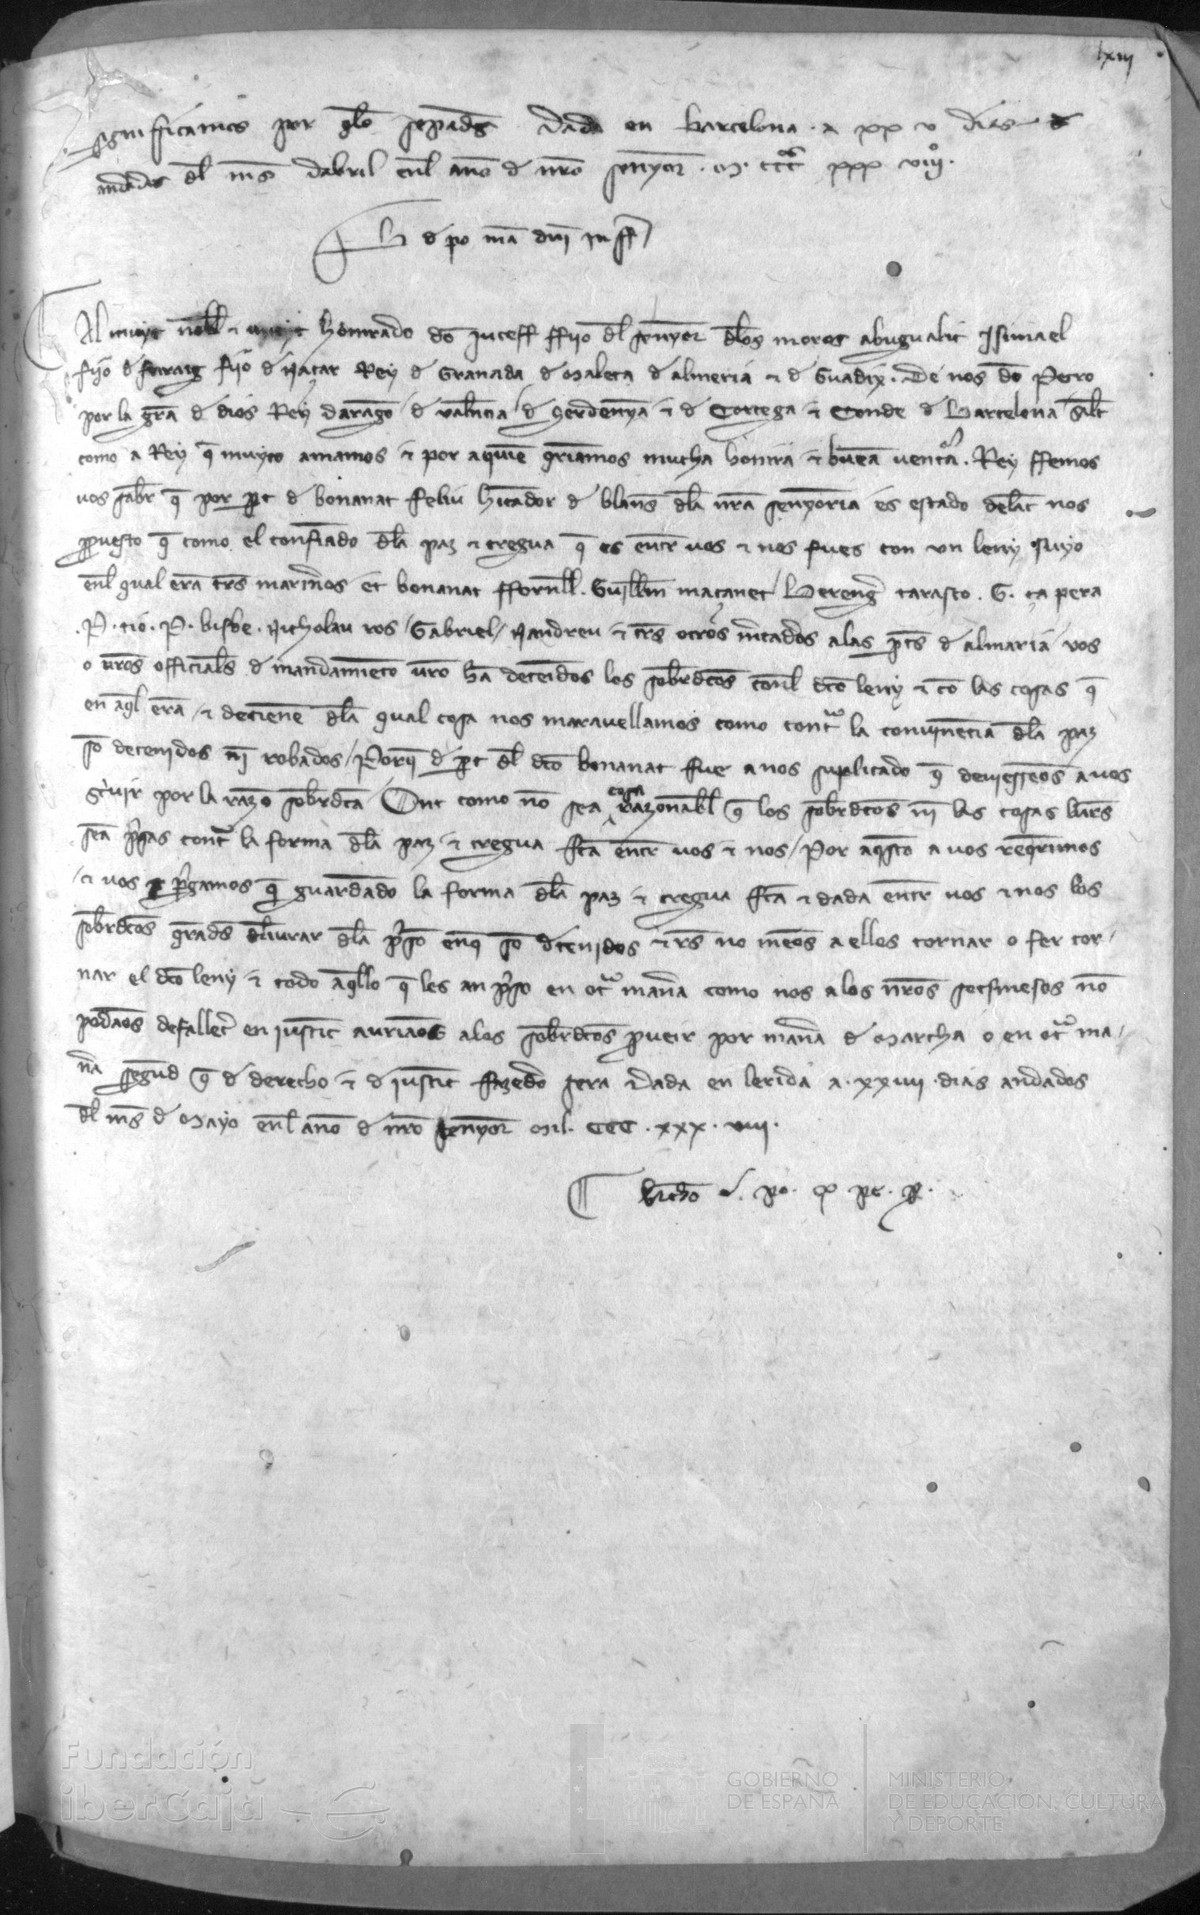 lxiij
significamos por q̃lo sepades Dada en Barcelona . a xx v dias
andados dl mes dabril enl año d nr̃o senyor . M . CCC xxx viijº.
Al muyt nobl & muyt honrado dõ Juceff ffijo dl senyor dlos moros abugualit Ismael
fijo d farag fijo d naçar Rey d Granada d Maleca d almeria & d Guadix . De nos dõ Pero
por la gr̃a d dios Rey darago / d valẽcia / d Serdenya & d Corcega & Conde d Barcelona salt
como a Rey q̃ muyto amamos & por a quie querriamos mucha honra & buẽa ventura . Rey ffemos
vos saber q̃ por part d bonanat feliu d blans dla nr̃a senyoria es estado delãt nos
ppuesto q̃ como el confiãdo dla paz & tregua q̃ es entr vos & nos fues con un leny suyo
enl qual erã trs marineros et bonanat ffornll . Guillm maçanet / Bereng̃ tarasco . G . ça pera
. P . tio . P . bisbe . Nicholau ros / Gabriel / Nandreu & trs otros mercadros alas ptes d almaria / vos
o vr̃os officials d mandamiento vr̃o hã detenidos los sobrdctos conl dcto leny & cõ las cosas q̃
en aq̃l erã / & detienẽ dla qual cosa nos maravellamos como contra la convinẽcia dla paz
sõ detenidos ni robados / Porq̃ d pt dl dcto bonanat fue a nos suplicado q̃ deviessemos a vos
scrivir por la razõ sobrdcta / Ont como nõ sea cosa razonabl q̃ los sobrdctos ni las cosas lurs
seã p̃sas cont la forma dla paz & tregua fcta entr vos & nos / Por aq̃sto a vos requirimos
& vos p̃gamos q̃ guardãdo la forma dla paz & tregua fcta & dada entr vos & nos los
sobrdctos grads dliurar dla p̃sõ enq̃ sõ dtenidos & no mẽos a ellos tornar o fer tor-
nar el dcto leny & todo aq̃llo q̃ les an p̃so en otra manera como nos a los nr̃os sotsmesos nõ
podamos defallecer en iusticia auriamos a los sobrdctos proveir por manera d Marcha o en otra ma-
nera segund q̃ d derecho & d iusticia fazedor sera Dada en lerida a . xxiiii . dias andados
dl mes d Mayo enl año d nr̃o senyor Mil . CCC . xxx . viii .
Fundación
iberCaja
GOBIERNO
DE ESPAÑA
MINISTERIO
DE EDUCACIÓN, CULTURA
Y DEPORTE